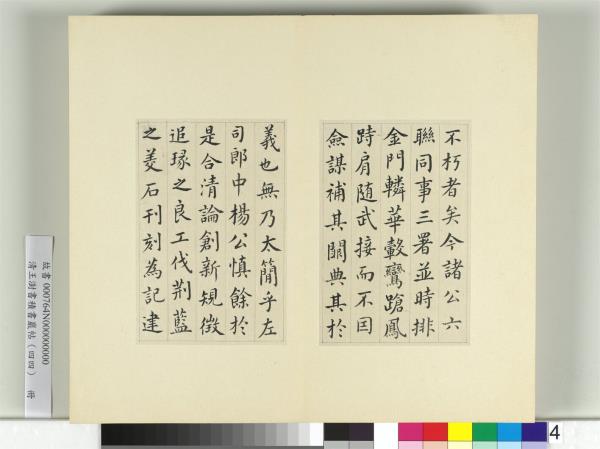 不朽者矣今諸公六
聯同事三署並時排
金門轔華轂鸞蹌鳳
跱肩随武接而不因
僉謀補其闕典其於
義也無乃太簡乎左
司郎中楊公慎餘於
是合清論創新規徴
追琢之良工伐荆藍
之美石刊刻為記建
故書 000764N000000000
清王澍書積書巖帖（四四） 冊
4